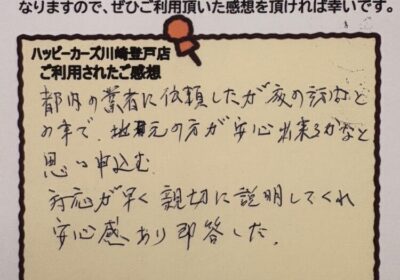 なりますので、ぜひご利用頂いた感想を頂ければ幸いです。
ハッピーカーズ川崎登戸店
ご利用されたご感想
都内の業者に依頼したが夜の訪問と
の事で、地元の方が安心出来るかなと
思い申込む。
対応が早く親切に説明してくれ
安心感あり即答した。